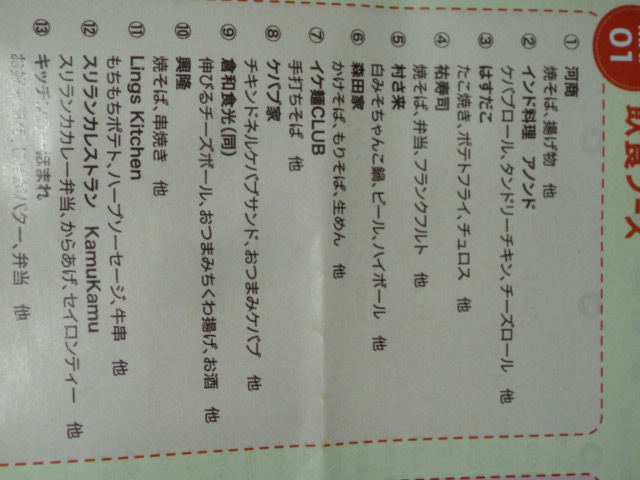 01 飲食ブース
① 河商
焼そば、揚げ物 他
② インド料理 アノンド
ケバブロール、タンドリーチキン、チーズロール 他
③ はすだこ
たこ焼き、ポテトフライ、チュロス 他
④ 祐寿司
焼そば、弁当、フランクフルト 他
⑤ 村さ来
白みそちゃんこ鍋、ビール、ハイボール 他
⑥ 森田家
かけそば、もりそば、生めん 他
⑦ イケ麺CLUB
手打ちそば 他
⑧ ケバブ家
チキンドネルケバブサンド、おつまみケバブ 他
⑨ 倉和食光(同)
伸びるチーズボール、おつまみちくわ揚げ、お酒 他
⑩ 興隆
焼そば、串焼き 他
⑪ Lings Kitchen
もちもちポテト、ハーブソーセージ、牛串 他
⑫ スリランカレストラン KamuKamu
スリランカカレー弁当、からあげ、セイロンティー 他
⑬ キッチン ほまれ
バター、弁当 他